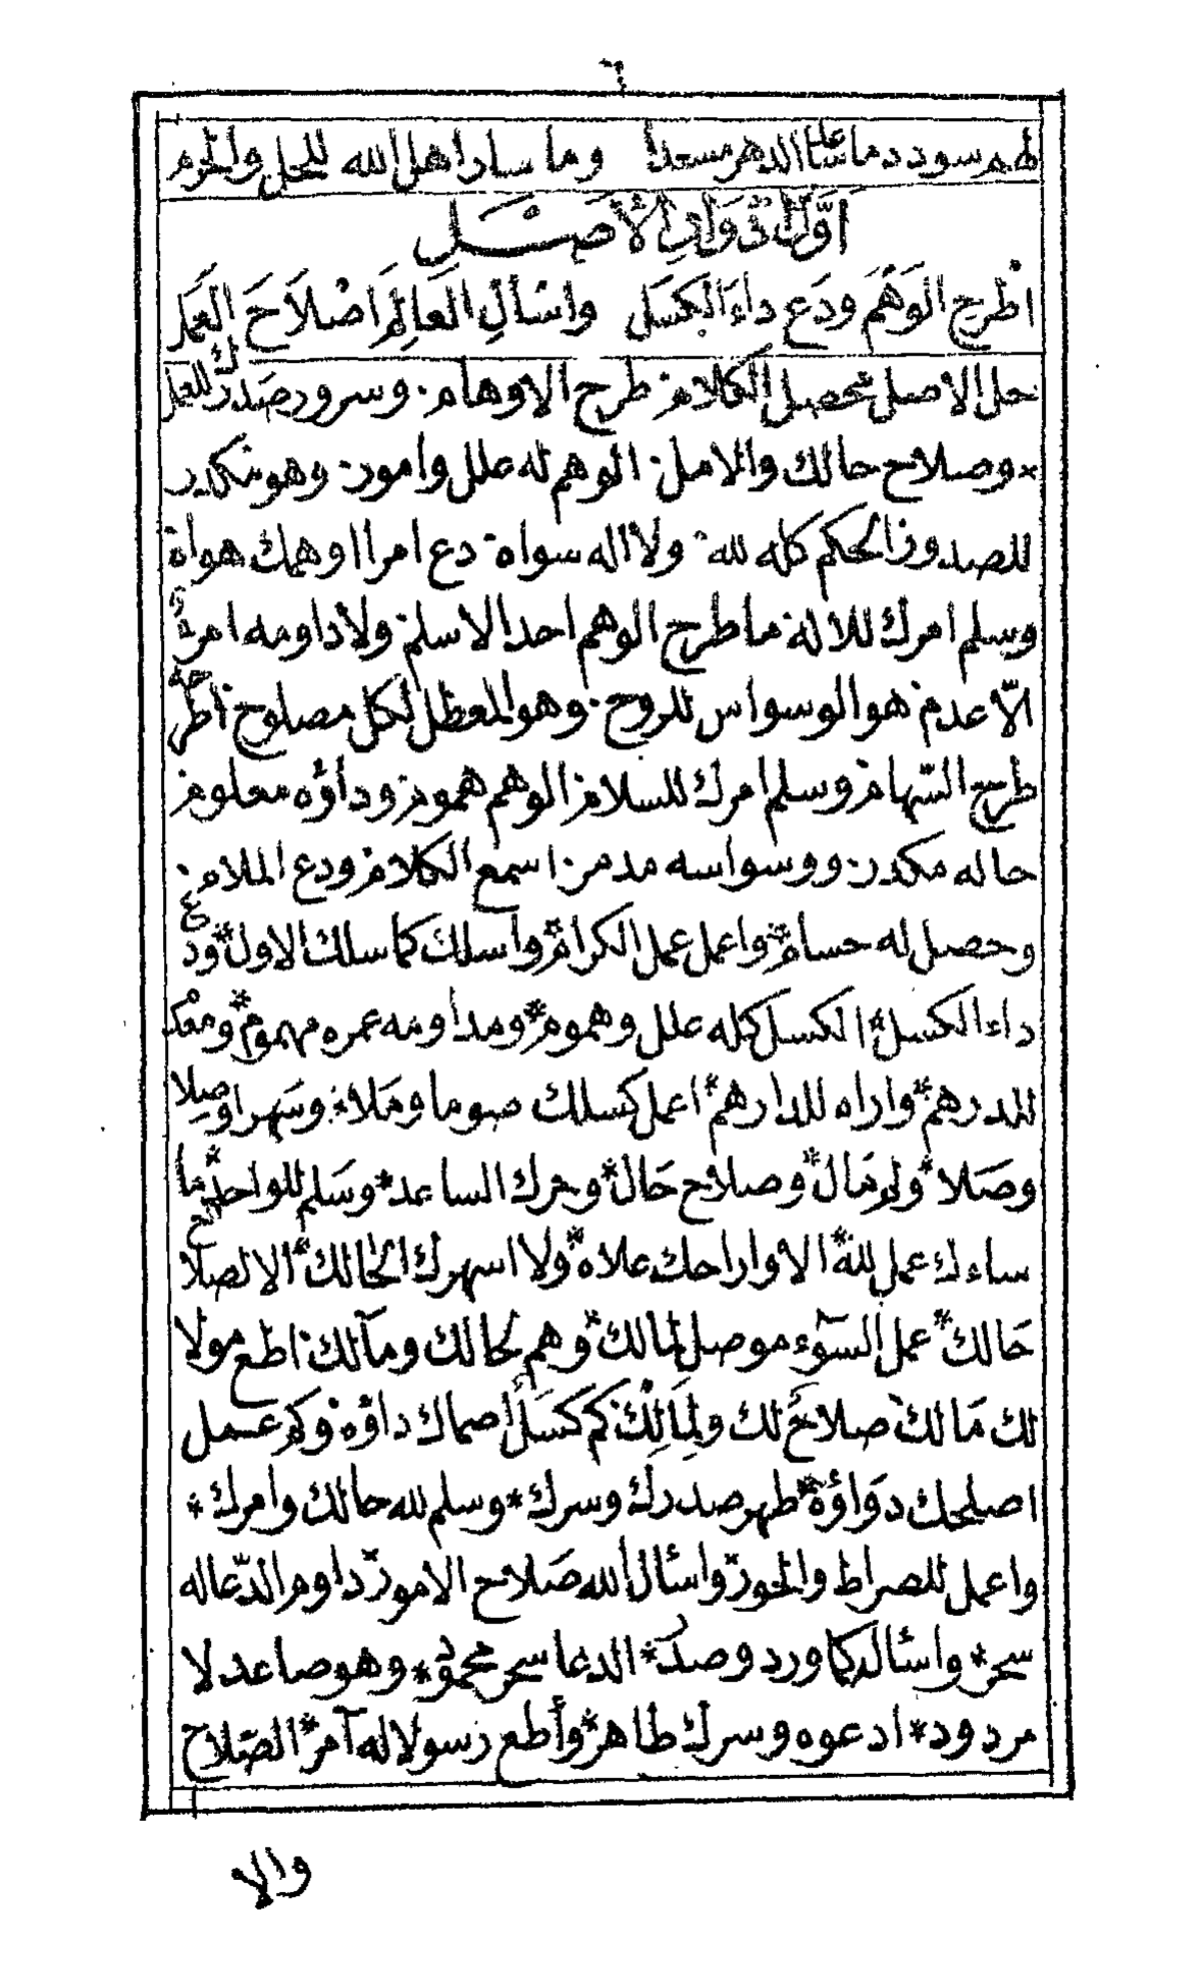 ٦
لهم سودد ما ساعد الدهر مسعدا وما سار اهل الله للحل والحرم
أوّل الدواوين الأصل
اطرح الوَهْمَ ودَع داءَ الكسَل واسْألِ العَالِمَ اصْلاَحَ العَمَل
حل الاصل محصل الكلام طرح الاوهام وسرور صَدرك للعمل
وصلاح حالك والامل الوهم له علل وامور وهو مكدر
للصدور الحكم كله لله ولا اله سواه دع امرا اوهمك هواه
وسلم امرك للاله ما طرح الوهم احد الا سلم ولا داومه امرؤ
الّا عدم هو الوسواس للروح وهو المعطل لكل مصلوح اطرحه
طرح السّهام وسلم امرك للسلام الوهم هموم وداؤه معلوم
حاله مكدر ووسواسه مدمر اسمع الكلام ودع الملام
وحصل له حسام واعمل عمل الكرام واسلك كما سلك الاول ودع
داء الكسل الكسل كله علل وهموم ومداومه عمره مهموم ومعك
للدرهم واراه للدارهم اعمل كسلك صوما وملا وسَهرا وصِلا
وصَلا ولم مال وصلاح حال وحرك الساعد وسَلم للواحد ما
ساءك عمل لله الا واراحك علاه ولا اسهرك الحالك الا لصلاح
حَالك عمل السّوء موصل لمالك وهم لحالك ومآلك اطع مولا
لك مَالك صلاحٌ لك ولِمَالِك كم كسَل أصماك داؤه وكم عمل
اصلحك دَواؤه طهر صدرك وسرك وسلم لله حالك وامرك
واعمل للصراط والحور واسأل الله صَلاح الامور داوم الدّعا له
سحر واسأله كما ورد وصدر الدعا سحر محمود وهو صاعد لا
مردود ادعوه وسرك طاهر وأطع رسولا له آمر الصّلاح
والا